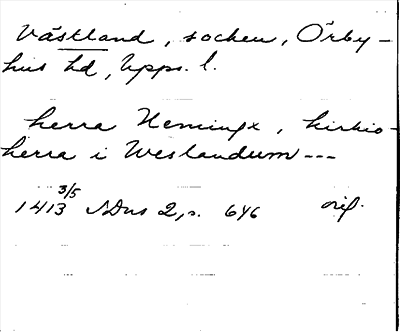 Västland, socken, Örby-
hus hd, Upps. l.
herra Hemingx, kirkio-
herra i Weslandum ---
1413 3/5 SDns 2, s. 646 orig.